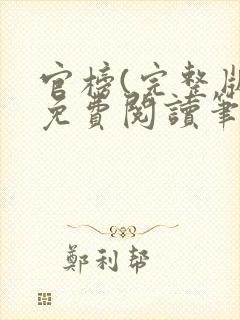 官榜(完整版
免費閱讀筆
鄭利幫